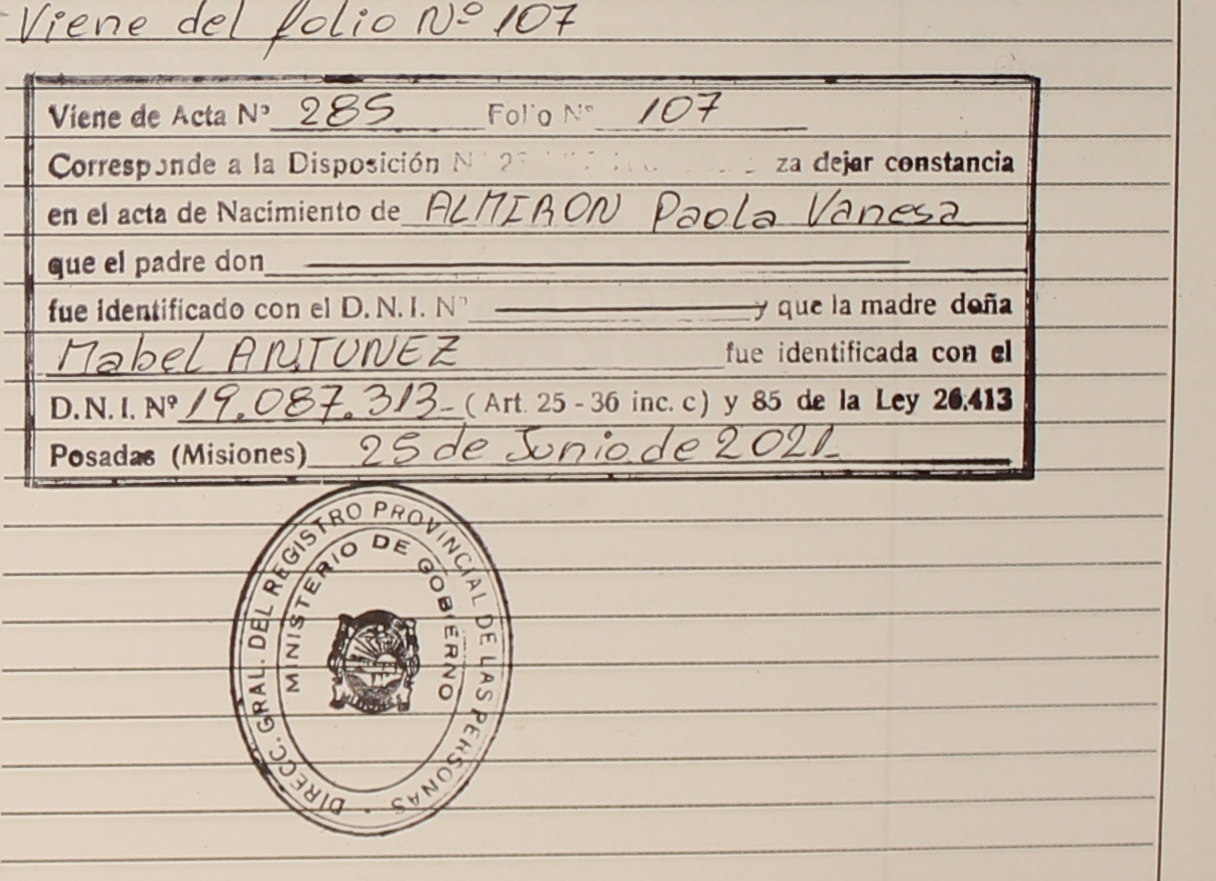 Viene del folio Nº 107
Viene de Acta Nº 285 Folio Nº 107
Corresponde a la Disposición N 2 za dejar constancia
en el acta de Nacimiento de ALMIRON Paola Vanesa
que el padre don
fue identificado con el D.N.I. Nº y que la madre doña
Mabel ANTUNEZ fue identificada con el
D.N.I. Nº 19.087.313- (Art. 25 - 36 inc. c) y 85 de la Ley 26.413
Posadas (Misiones) 25 de Junio de 2021
DIRECC. GRAL. DEL REGISTRO PROVINCIAL DE LAS PERSONAS
MINISTERIO DE GOBIERNO